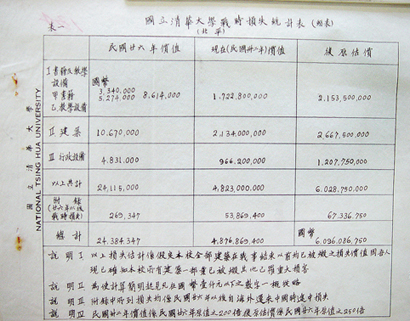 表一
國立清華大學戰時損失統計表(總表)
(北平)
民國廿六年價值 現在(民國卅二年)價值 復原估價
I 書籍及教學設備 國幣
甲書籍 3,340,000
乙教學設備 5,274,000 8,614,000 1,722,800,000 2,153,500,000
II 建築 10,670,000 2,134,000,000 2,667,500,000
III 行政設備 4,831,000 966,200,000 1,207,750,000
以上共計 24,115,000 4,823,000,000 6,028,750,000
附錄 (廿六年以後戰時損失) 269,347 53,869,400 67,336,750
總計 24,384,347 4,876,869,400 國幣 6,096,086,750
說明I 以上損失估計係假定本校全部建築在戰事結束以前均已被毀之損失價值因吾人
現已確知本校所有建築一部業已被毀其他已罹重大損害
說明II 為使計算簡明起見凡在國幣壹仟元以下之數字一概從略
說明III 附錄中所列損失均係民國廿六年以後自海外運來中國時途中損失
說明IV 民國卅二年價值係民國廿六年原值之200倍復原估價係民國廿六年原值之250倍
國立清華大學
NATIONAL TSING HUA UNIVERSITY